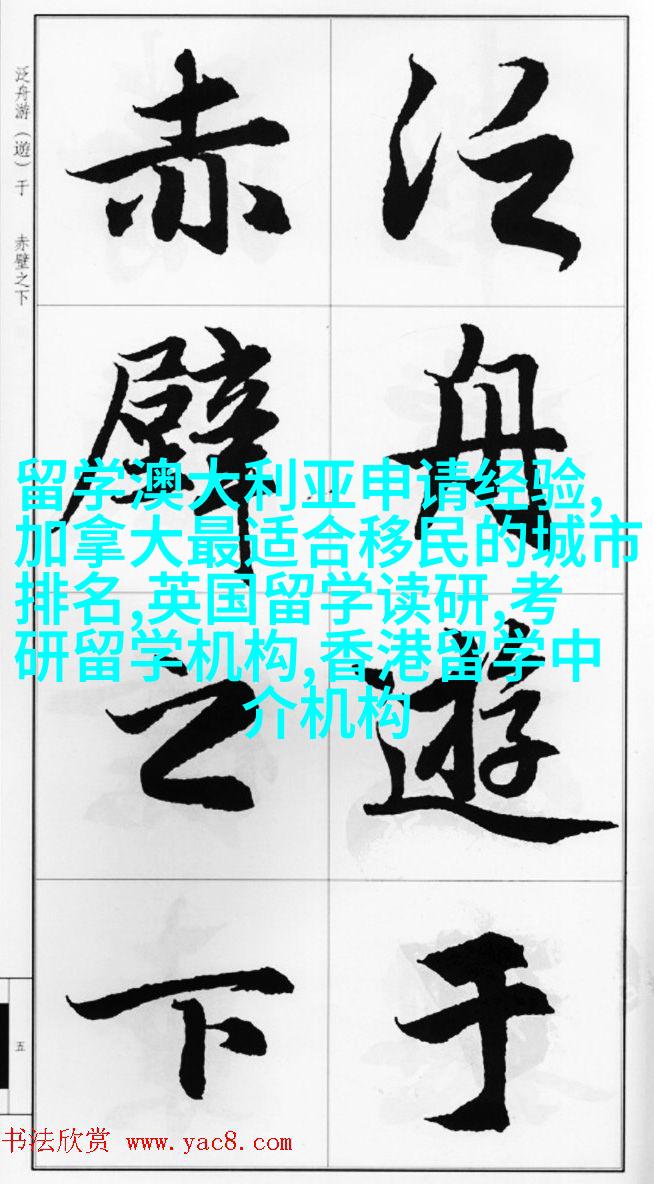 泛舟遊于
赤壁之下
泛舟游（遊）于　赤壁之下
留学澳大利亚申请经验,
加拿大最适合移民的城市
排名,英国留学读研,考
研留学机构,香港留学中
介机构
五
书法欣赏 www.yac8.com